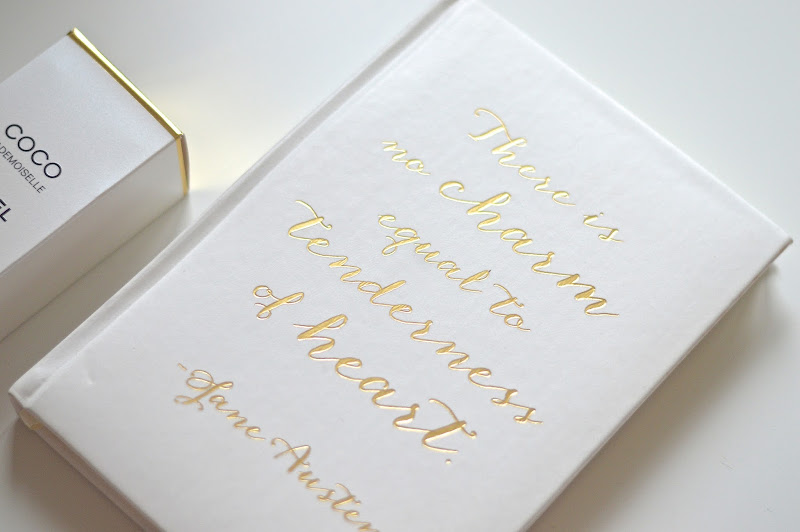 COCO
DEMOISELLE
EL
There is
no charm
equal to
tenderness
of heart.
-Jane Austen